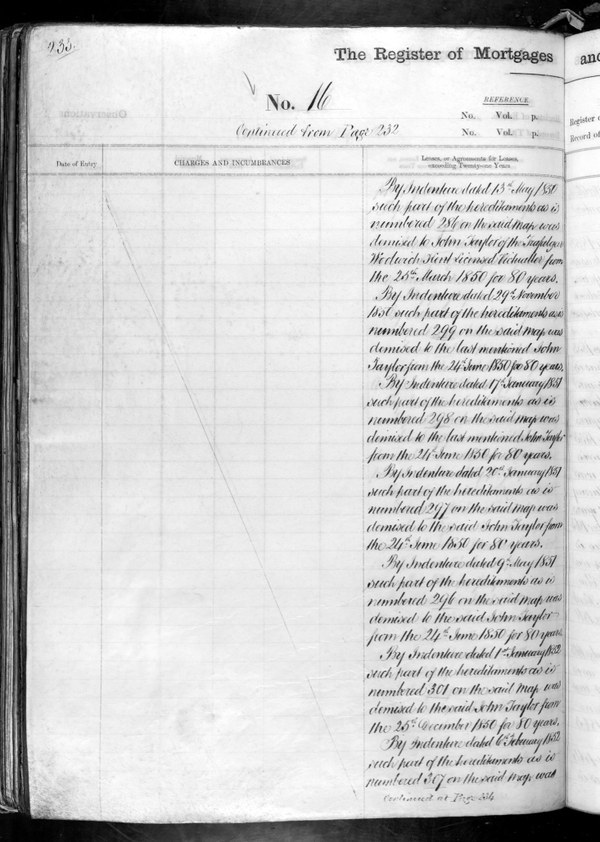 233.
The Register of Mortgages
and
No. 16
REFERENCE.
No. Vol. p.
No. Vol. p.
Continued from Page 232
Register o
Record of
Date of Entry
CHARGES AND INCUMBRANCES
Leases, or Agreements for Leases,
exceeding Twenty-one Years
By Indenture dated 13th May 1850
such part of the hereditaments as is
numbered 286 on the said map was
demised to John Taylor of the Trafalgar
Woolwich Kent Licensed Victualler from
the 25th March 1850 for 80 years.
By Indenture dated 29th November
1850 such part of the hereditaments as is
numbered 299 on the said map was
demised to the last mentioned John
Taylor from the 24th June 1850 for 80 years.
By Indenture dated 17th January 1851
such part of the hereditaments as is
numbered 298 on the said map was
demised to the last mentioned John Taylor
from the 24th June 1850 for 80 years.
By Indenture dated 20th January 1851
such part of the hereditaments as is
numbered 297 on the said map was
demised to the said John Taylor from
the 24th June 1850 for 80 years.
By Indenture dated 9th May 1851
such part of the hereditaments as is
numbered 296 on the said map was
demised to the said John Taylor
from the 24th June 1850 for 80 years.
By Indenture dated 1st January 1852
such part of the hereditaments as is
numbered 301 on the said map was
demised to the said John Taylor from
the 25th December 1850 for 80 years.
By Indenture dated 6th February 1852
such part of the hereditaments as is
numbered 307 on the said map was
Continued at Page 234